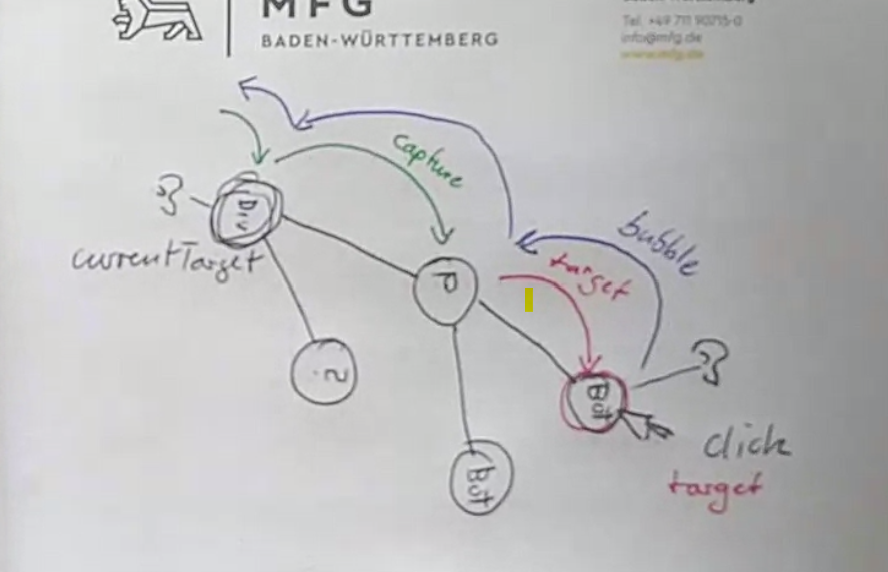 MFG
BADEN-WÜRTTEMBERG
Tel. +49 711 90715-0
info@mfg.de
www.mfg.de
capture
bubble
target
Div
currentTarget
P
But
But
click
target